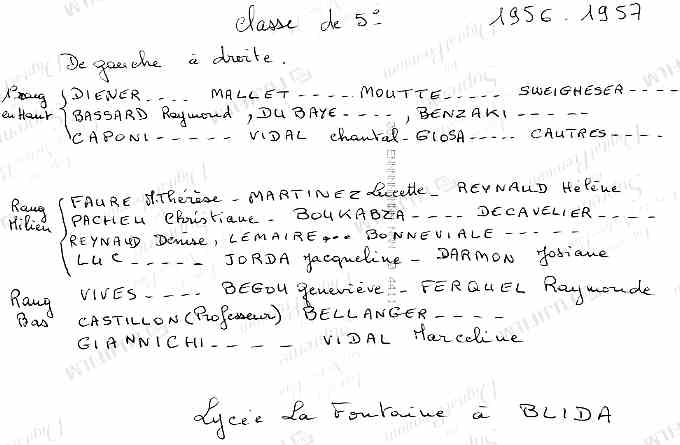 Classe de 5e 1956.1957
De gauche à droite.
1er rang en Haut
DIENER.... MALLET..... MOUTTE..... SWEIGHESER....
BASSARD Raymond, DUBAYE----, BENZAKI-----
CAPONI----- VIDAL chantal- GIOSA----- CAUTRES-----
Rang Milieu
FAURE M.Thérèse - MARTINEZ Lucette - REYNAUD Hélène
PACHEU Christiane - BOUKABZA ---- DECAVELIER ----
REYNAUD Denise, LEMAIRE--- BONNEVIALE -----
LUC ----- JORDA Jacqueline - DARMON Josiane
Rang Bas
VIVES ---- BEGOU Geneviève - FERQUEL Raymonde
CASTILLON (Professeur) BELLANGER----
GIANNICHI ---- VIDAL Marceline
Lycée La Fontaine à BLIDA